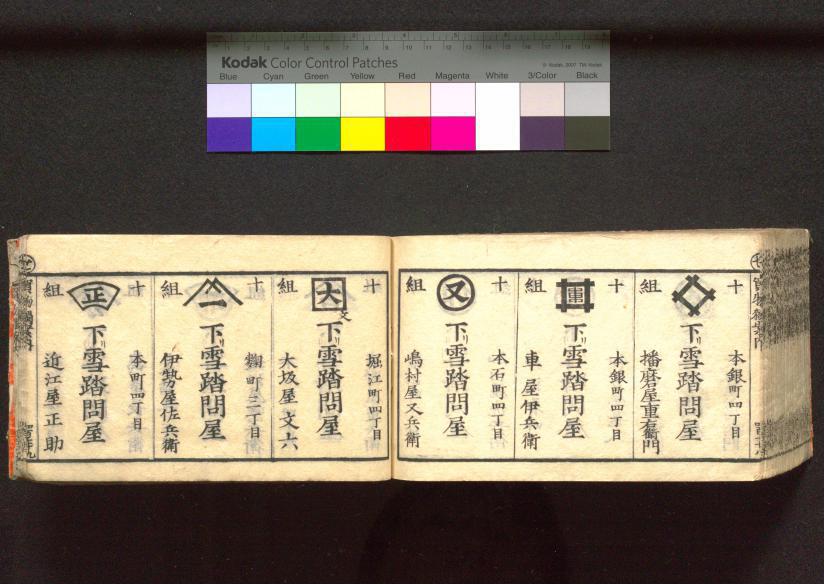 Kodak Color Control Patches
© Kodak, 2007 TM: Kodak
Blue Cyan Green Yellow Red Magenta White 3/Color Black
十組
本銀町四丁目
下り雪踏問屋
播磨屋重右衛門
十組
本銀町四丁目
下り雪踏問屋
車屋伊兵衛
十組
又
本石町四丁目
下り雪踏問屋
嶋村屋又兵衛
十組
大
文
堀江町四丁目
下り雪踏問屋
大坂屋文六
十組
一
麹町三丁目
下り雪踏問屋
伊勢屋佐兵衛
十組
正
本町四丁目
下り雪踏問屋
近江屋正助